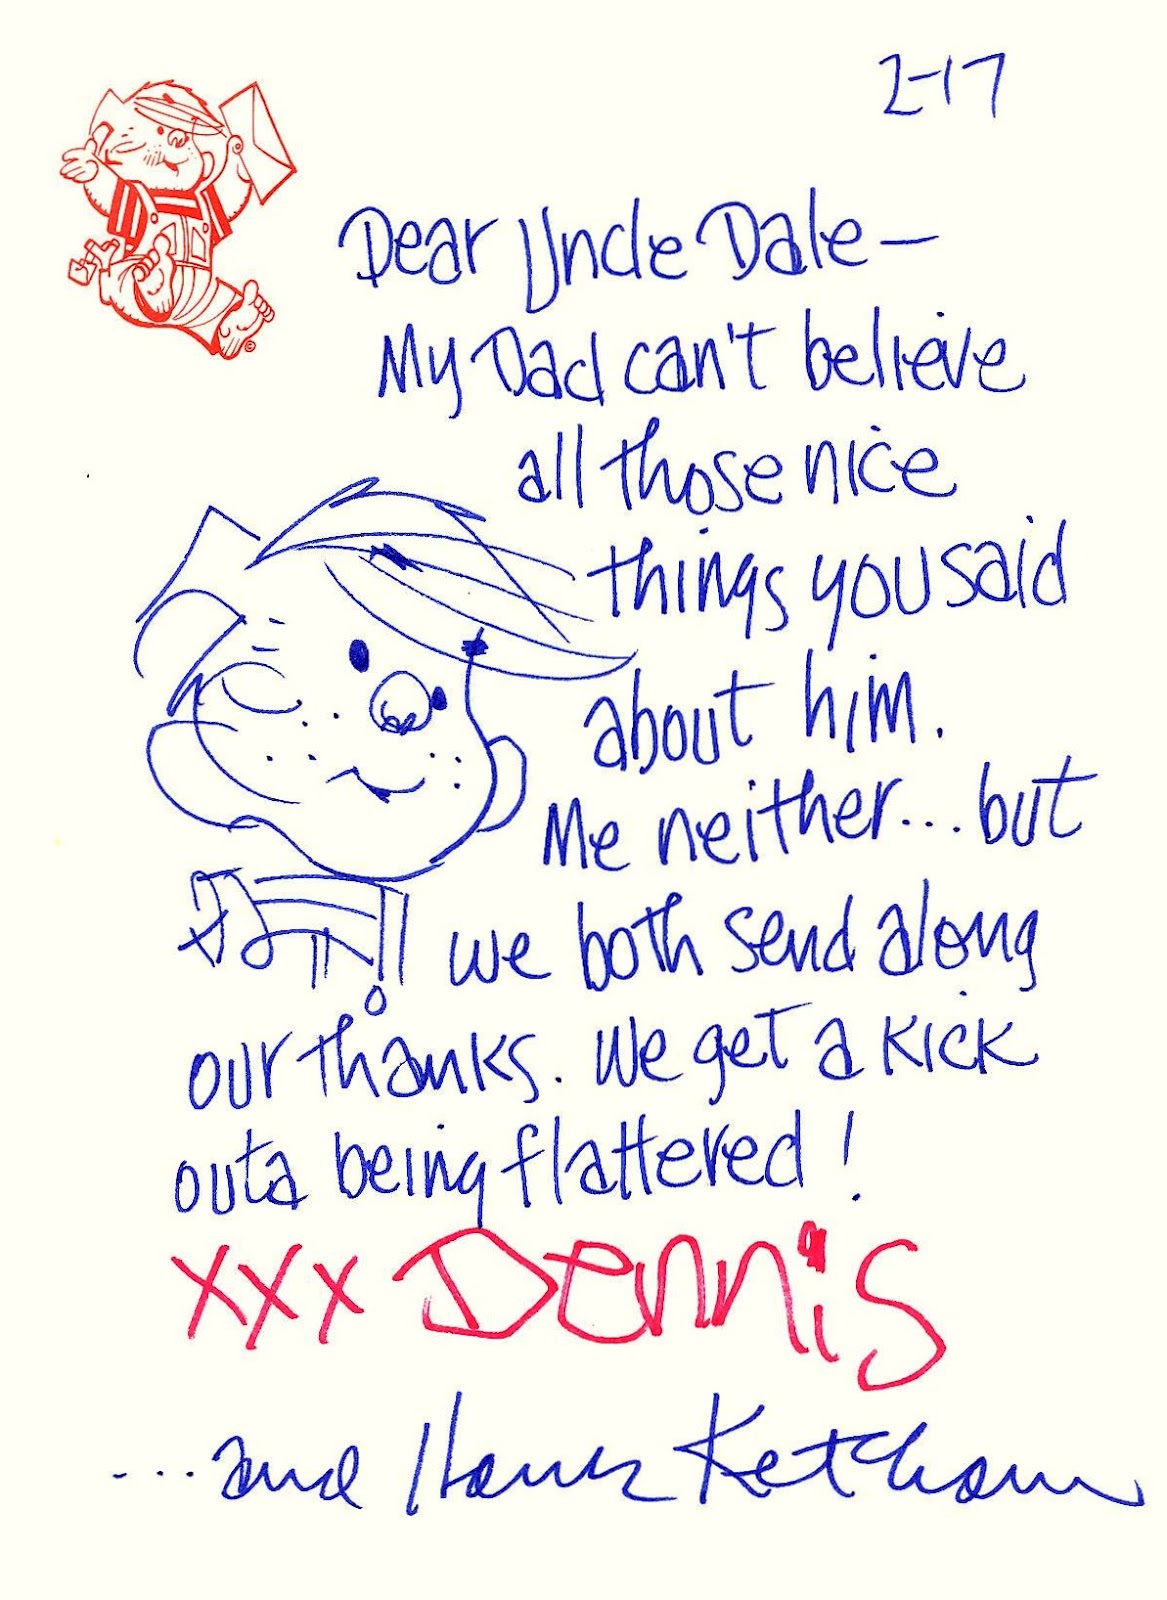 2-17
Dear Uncle Dale —
My Dad can't believe
all those nice
things you said
about him.
Me neither... but
we both send along
our thanks. We get a kick
outa being flattered!
xxx Dennis
...and Hank Ketcham
©